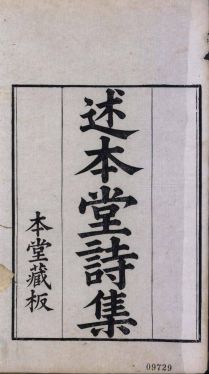 述本堂詩集
本堂藏板
09729